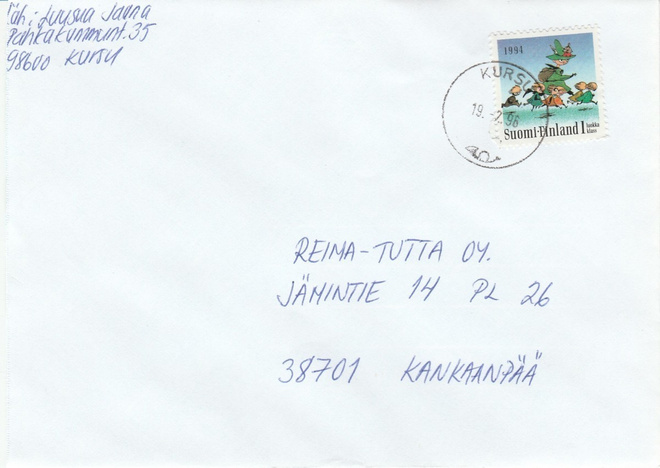 Läh: Luusua Jaana
Pahkakummunt. 35
98600 KURSU
1994
KURSU
19.-7.96
Suomi-Finland 1 luokka klass
REIMA-TUTTA OY.
JÄMINTIE 14 PL 26
38701 KANKAANPÄÄ